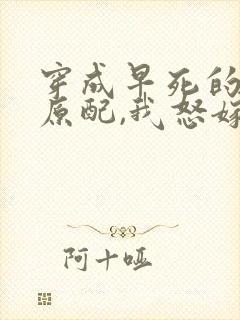 穿成早死的
原配,我怒嫁
阿十哑